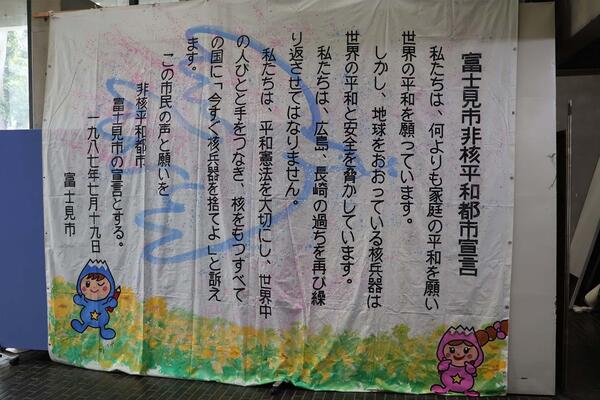 富士見市非核平和都市宣言
私たちは、何よりも家庭の平和を願い
世界の平和を願っています。
しかし、地球をおおっている核兵器は
世界の平和と安全を脅かしています。
私たちは、広島、長崎の過ちを再び繰
り返させてはなりません。
私たちは、平和憲法を大切にし、世界中
の人びとと手をつなぎ、核をもつすべて
の国に「今すぐ核兵器を捨てよ」と訴え
ます。
この市民の声と願いを
非核平和都市
富士見市の宣言とする。
一九八七年七月十九日
富士見市